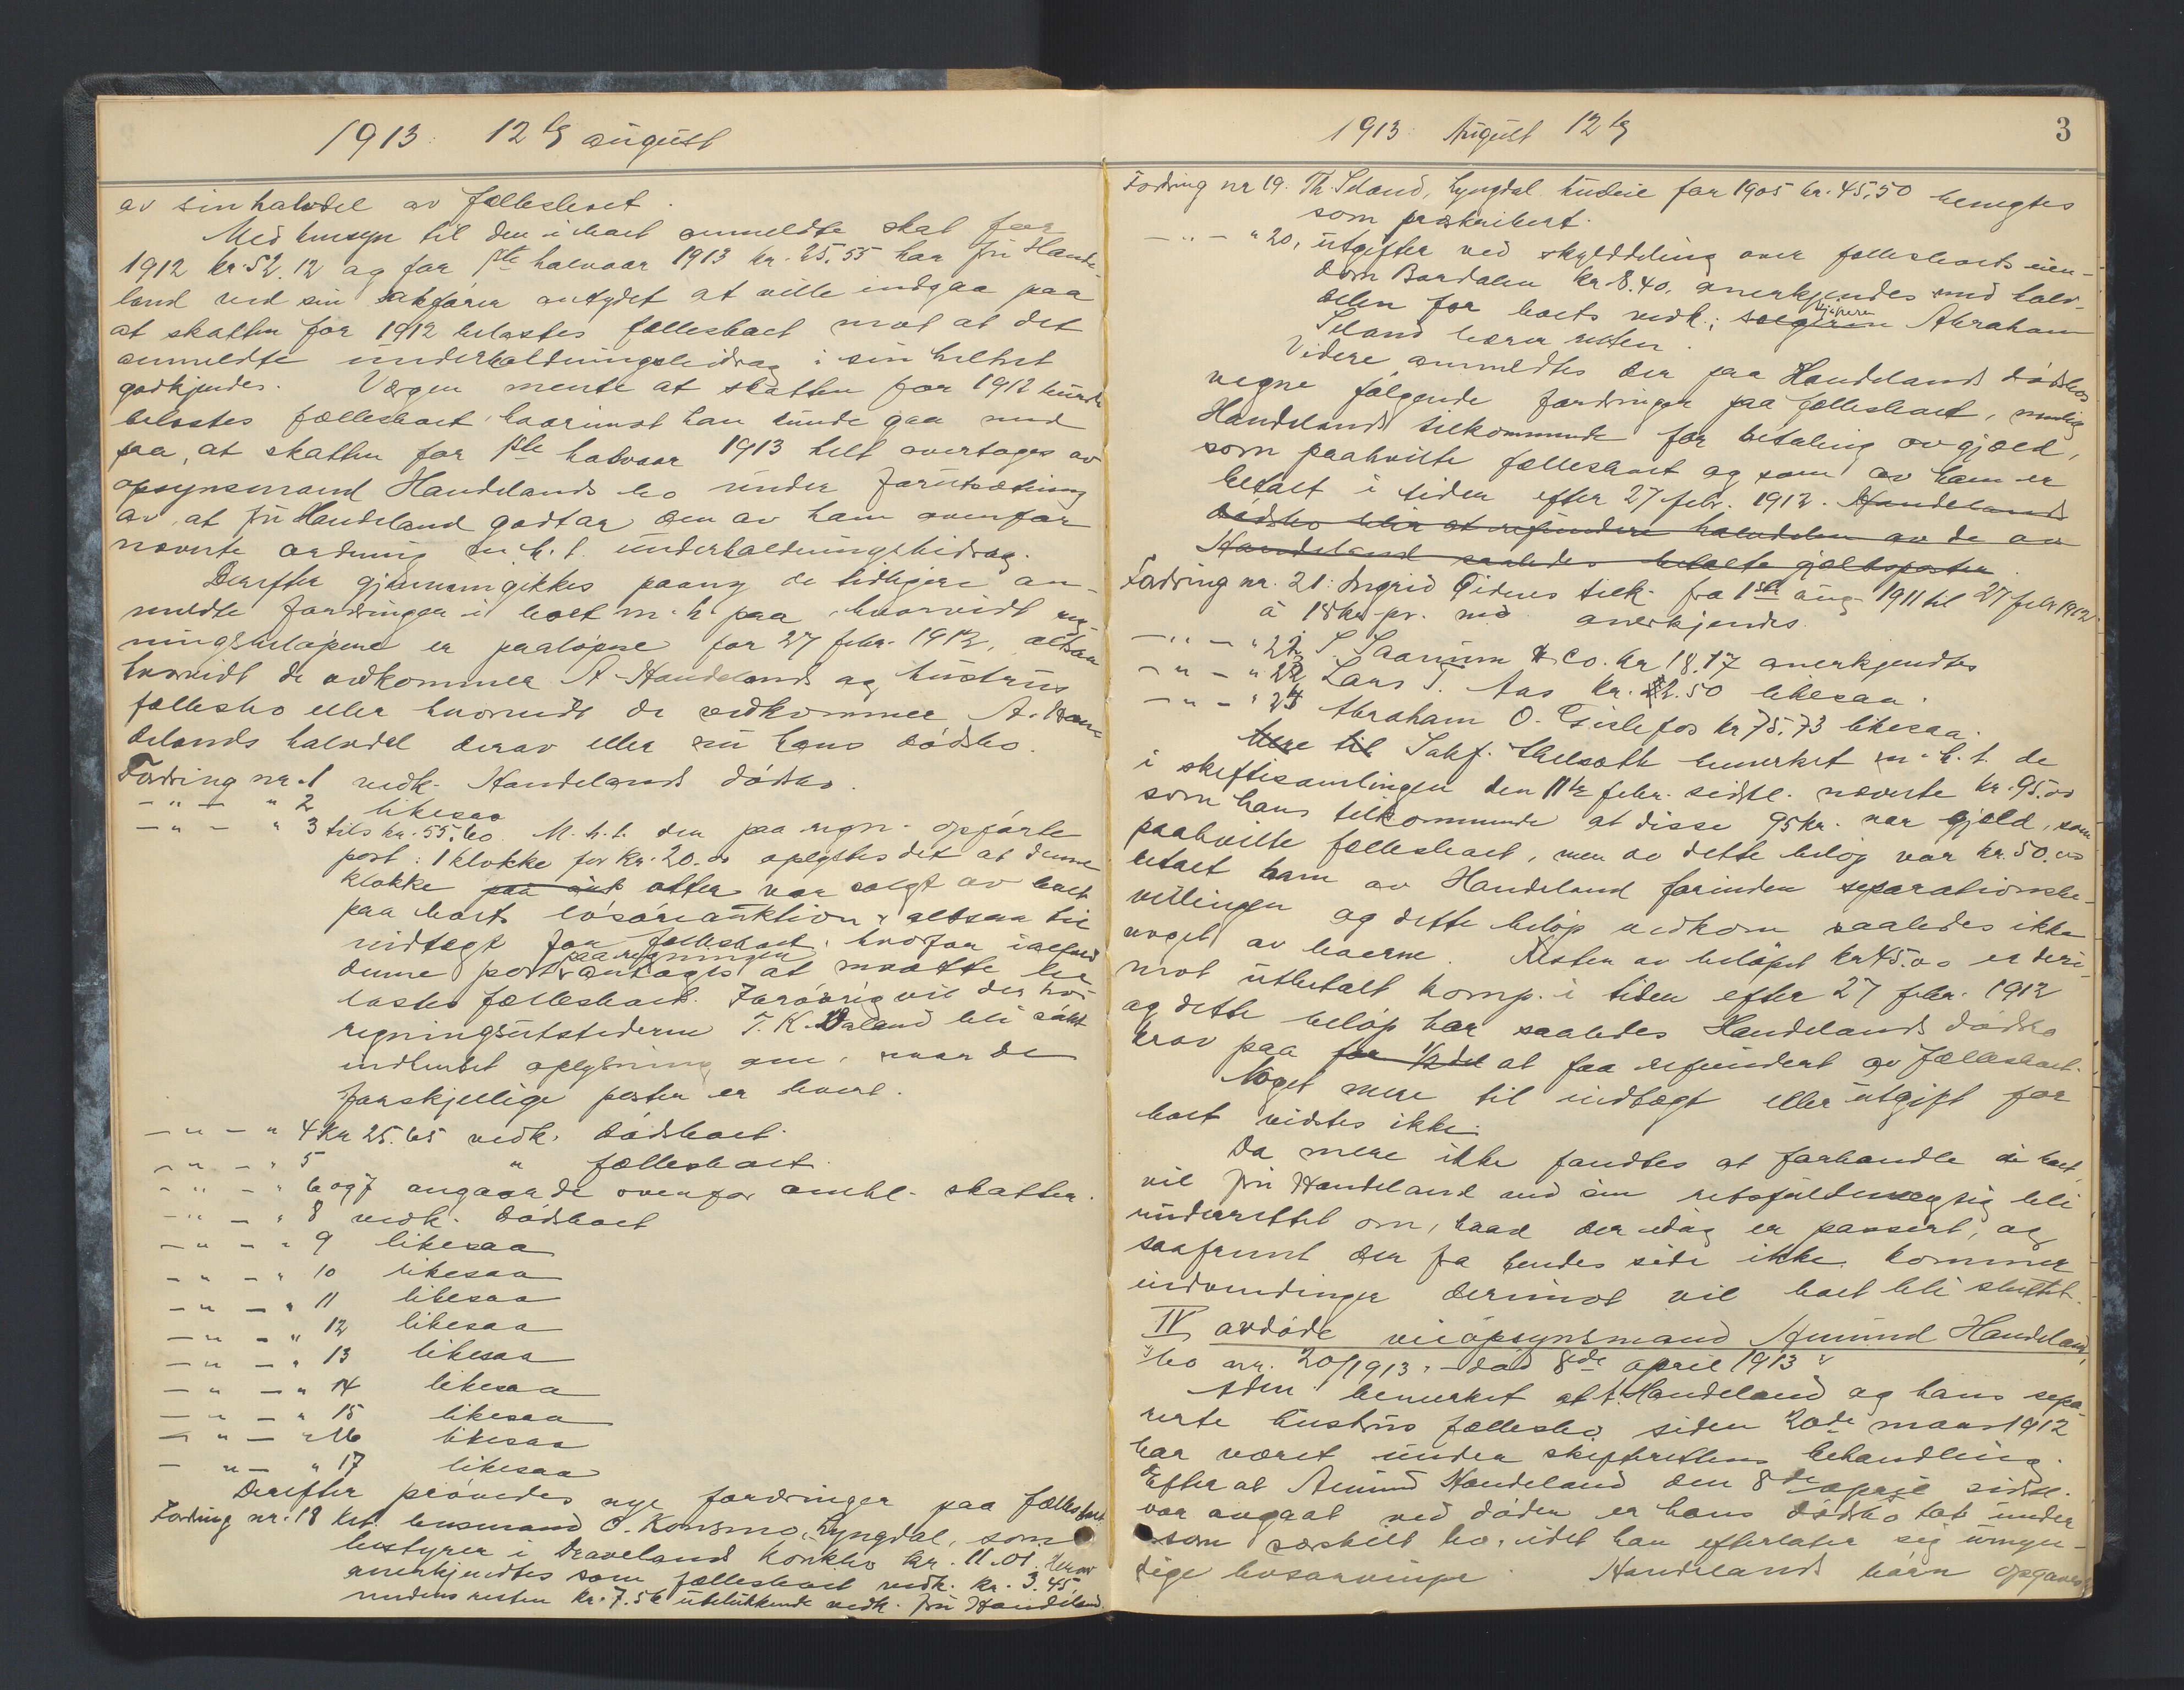 1913. 12te august
av sin halvdel av fællesboet.
Med hensyn til den i boet anmeldte skat for
1912 kr. 52.12 og for 1ste halvaar 1913 kr. 25.55 har fru Hande-
land ved sin sakfører antydet at ville indgaa paa
at skatten for 1912 belastes fællesboet mot at det
anmeldte underholdningsbidrag i sin helhet
godkjendes. Vergen mente at skatten for 1912 burde
belastes fællesboet, hvorimot han kunde gaa med
paa, at skatten for 1ste halvaar 1913 helt overtages av
opsynsmand Handelands bo under forutsætning
av, at fru Handeland godtar den av ham ovenfor
nævnte ordning m. h. t. underholdningsbidrag.
Derefter gjennemgikkes paany de tidligere an-
meldte fordringer i boet m. h. paa, hvorvidt reg-
ningsbeløpene er paaløpne før 27 febr. 1912, altsaa
hvorvidt de vedkommer A. Handelands og hustrus
fællesbo eller hvorvidt de vedkommer A. Han-
delands halvdel derav eller nu hans dødsbo.
Fordring nr. 1 vedk. Handelands dødsbo.
— " — " 2 likesaa
— " — " 3 tils kr. 55.60. M. h. t. den paa regn. opførte
post: 1 klokke for kr. 20.00 oplystes det at denne
klokke paa ny atter var solgt av boet
paa boets løsøreauktion, altsaa til
indtægt for fællesboet, hvorfor ialfald
denne post paa regningen antages at maatte be-
lastes fællesboet. Forøvrig vil der hos
regningsutstederen T. K. Daland bli søkt
indhentet oplysning om, naar de
forskjellige poster er levert.
— " — " 4 kr 25.65 vedk. dødsboet.
— " — " 5 " fællesboet.
— " — " 6 og 7 angaar de ovenfor omhl. skatter.
— " — " 8 vedk. dødsboet
— " — " 9 likesaa
— " — " 10 likesaa
— " — " 11 likesaa
— " — " 12 likesaa
— " — " 13 likesaa
— " — " 14 likesaa
— " — " 15 likesaa
— " — " 16 likesaa
— " — " 17 likesaa
Derefter prøvedes nye fordringer paa fællesboet
Fordring nr. 18 kst. lensmand O. Konsmo, Lyngdal, som
bestyrer i Dravelands konkbo kr. 11.01. Herav
anerkjendtes som fællesboet vedk. kr. 3.45,
medens resten kr. 7.56 utelukkende vedk. fru Handeland.
1913. August 12te
3
Fordring nr 19. Th. Seland, Lyngdal husleie for 1905 kr. 45,50 benegtes
som præskribert.
— " — " 20, utgifter ved skylddeling over fællesboets eien-
dom Bordalen kr. 8.40, anerkjendes med halv-
delen for boets vedk.; sælgeren kjøperen Abraham
Seland bærer resten.
Videre anmeldtes der paa Handelands dødsbos
vegne følgende fordringer paa fællesboet, nemlig
Handelands tilkommende for betaling av gjæld,
som paahvilte fællesboet og som av ham er
betalt i tiden efter 27 febr. 1912. Handelands
dødsbo blir at refundere halvdelen av de av
Handeland saaledes betalte gjældsposter.
Fordring nr. 21: Ingrid Eidens tilk. fra 1ste aug. 1911 til 27 febr 1912
à 18 kr pr. md anerkjendes.
— " — " 22 S. Saanum & Co. kr 18.17 anerkjendtes
— " — " 23 Lars T. Aas kr. 22.50 likesaa.
— " — " 24 Abraham O. Gislefos kr 75.73 likesaa.
Mere til Sakf. bemerket m. h. t. de
i skiftesamlingen den 11te febr. sidstl. nævnte kr. 95.00
som hans tilkommende at disse 95 kr. var gjæld, som
paahvilte fællesboet, men av dette beløp var kr. 50.00
betalt ham av Handeland forinden separationsbe-
villingen og dette beløp vedkom saaledes ikke
noget av boerne. Resten av beløpet kr 45.00 er deri-
mot utbetalt komp. i tiden efter 27 febr. 1912
og dette beløp har saaledes Handelands dødsbo
krav paa for 1/2 del at faa refundert av fællesboet.
Noget mere til indtægt eller utgift for
boet vidstes ikke.
Da mere ikke fandtes at forhandle i boet,
vil fru Handeland ved sin retsfuldmægtig bli
underrettet om, hvad der idag er passert, og
saafremt der fra hendes side ikke kommer
indvendinger derimot vil boet bli sluttet.
IV avdøde viceopsynsmand Amund Handeland,
bo nr. 20/1913, – død 8de april 1913
Adm. bemerket at A. Handeland og hans sepa-
rerte hustrus fællesbo siden 20de mars 1912
har været under skifterettens behandling.
Efter at Amund Handeland den 8de april sidstl.
var avgaat ved døden er hans dødsbo tat under
som særskilt bo, idet han efterlater sig umyn-
dige livsarvinger. Handelands børn opgaves